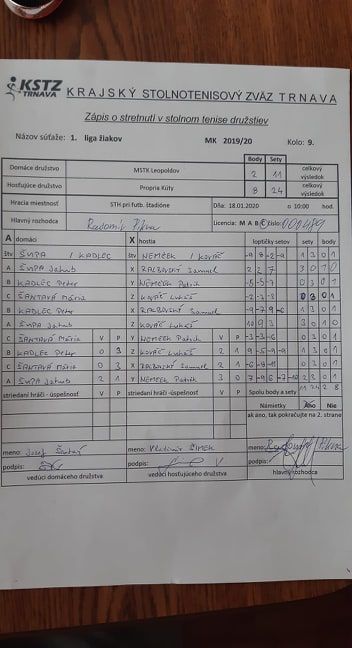 KSTZ TRNAVA KRAJSKÝ STOLNOTENISOVÝ ZVÄZ TRNAVA
Zápis o stretnutí v stolnom tenise družstiev
Názov súťaže: 1. liga žiakov MK 2019/20 Kolo: 9.
Body Sety
Domáce družstvo MSTK Leopoldov 2 11 celkový výsledok
Hosťujúce družstvo Propria Kúty 8 24 celkový výsledok
Hracia miestnosť STH pri futb. štadióne Dňa: 18.01.2020 o 10:00 hod.
Hlavný rozhodca Licencia: M A B C číslo:
A domáci X hostia loptičky setov sety body
štv ŠUPA / KADLEC štv NEMČEK / KOVÁČ -9 8 -2 -9 1 3 0 1
A ŠUPA Jakub X Samuel 2 2 7 3 0 1 0
B KADLEC Peter Y NEMEČEK Patrik -5 -5 -7 0 3 0 1
C Mária Z KOVÁČ Lukáš 0 3 0 1
B KADLEC Peter X Samuel -9 -7 9 -6 1 3 0 1
A ŠUPA Jakub Z KOVÁČ Lukáš 10 9 3 3 0 1 0
C Mária V P Y NEMEČEK Patrik V P -3 -3 -6 0 3 0 1
B KADLEC Peter 0 3 Z KOVÁČ Lukáš 2 1 9 -5 -9 -9 1 3 0 1
C Mária 0 3 X Samuel 2 1 -6 -8 0 3 0 1
A ŠUPA Jakub 2 1 Y NEMEČEK Patrik 3 0 7 -9 6 -7 -10 2 3 0 1
striedaní hráči - úspešnosť V P striedaní hráči - úspešnosť V P Spolu body a sety 11 24 2 8
Námietky Áno Nie
ak áno, tak pokračujte na 2. strane
meno: Jozef meno: Vladimír ŠIMEK meno:
podpis: podpis: podpis:
vedúci domáceho družstva vedúci hosťujúceho družstva hlavný rozhodca